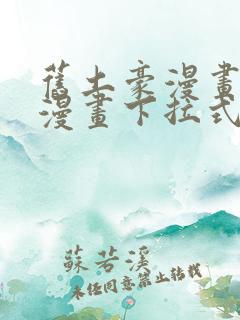 舊土豪漫畫
漫畫下拉式
蘇若溪
未經同意禁止轉載